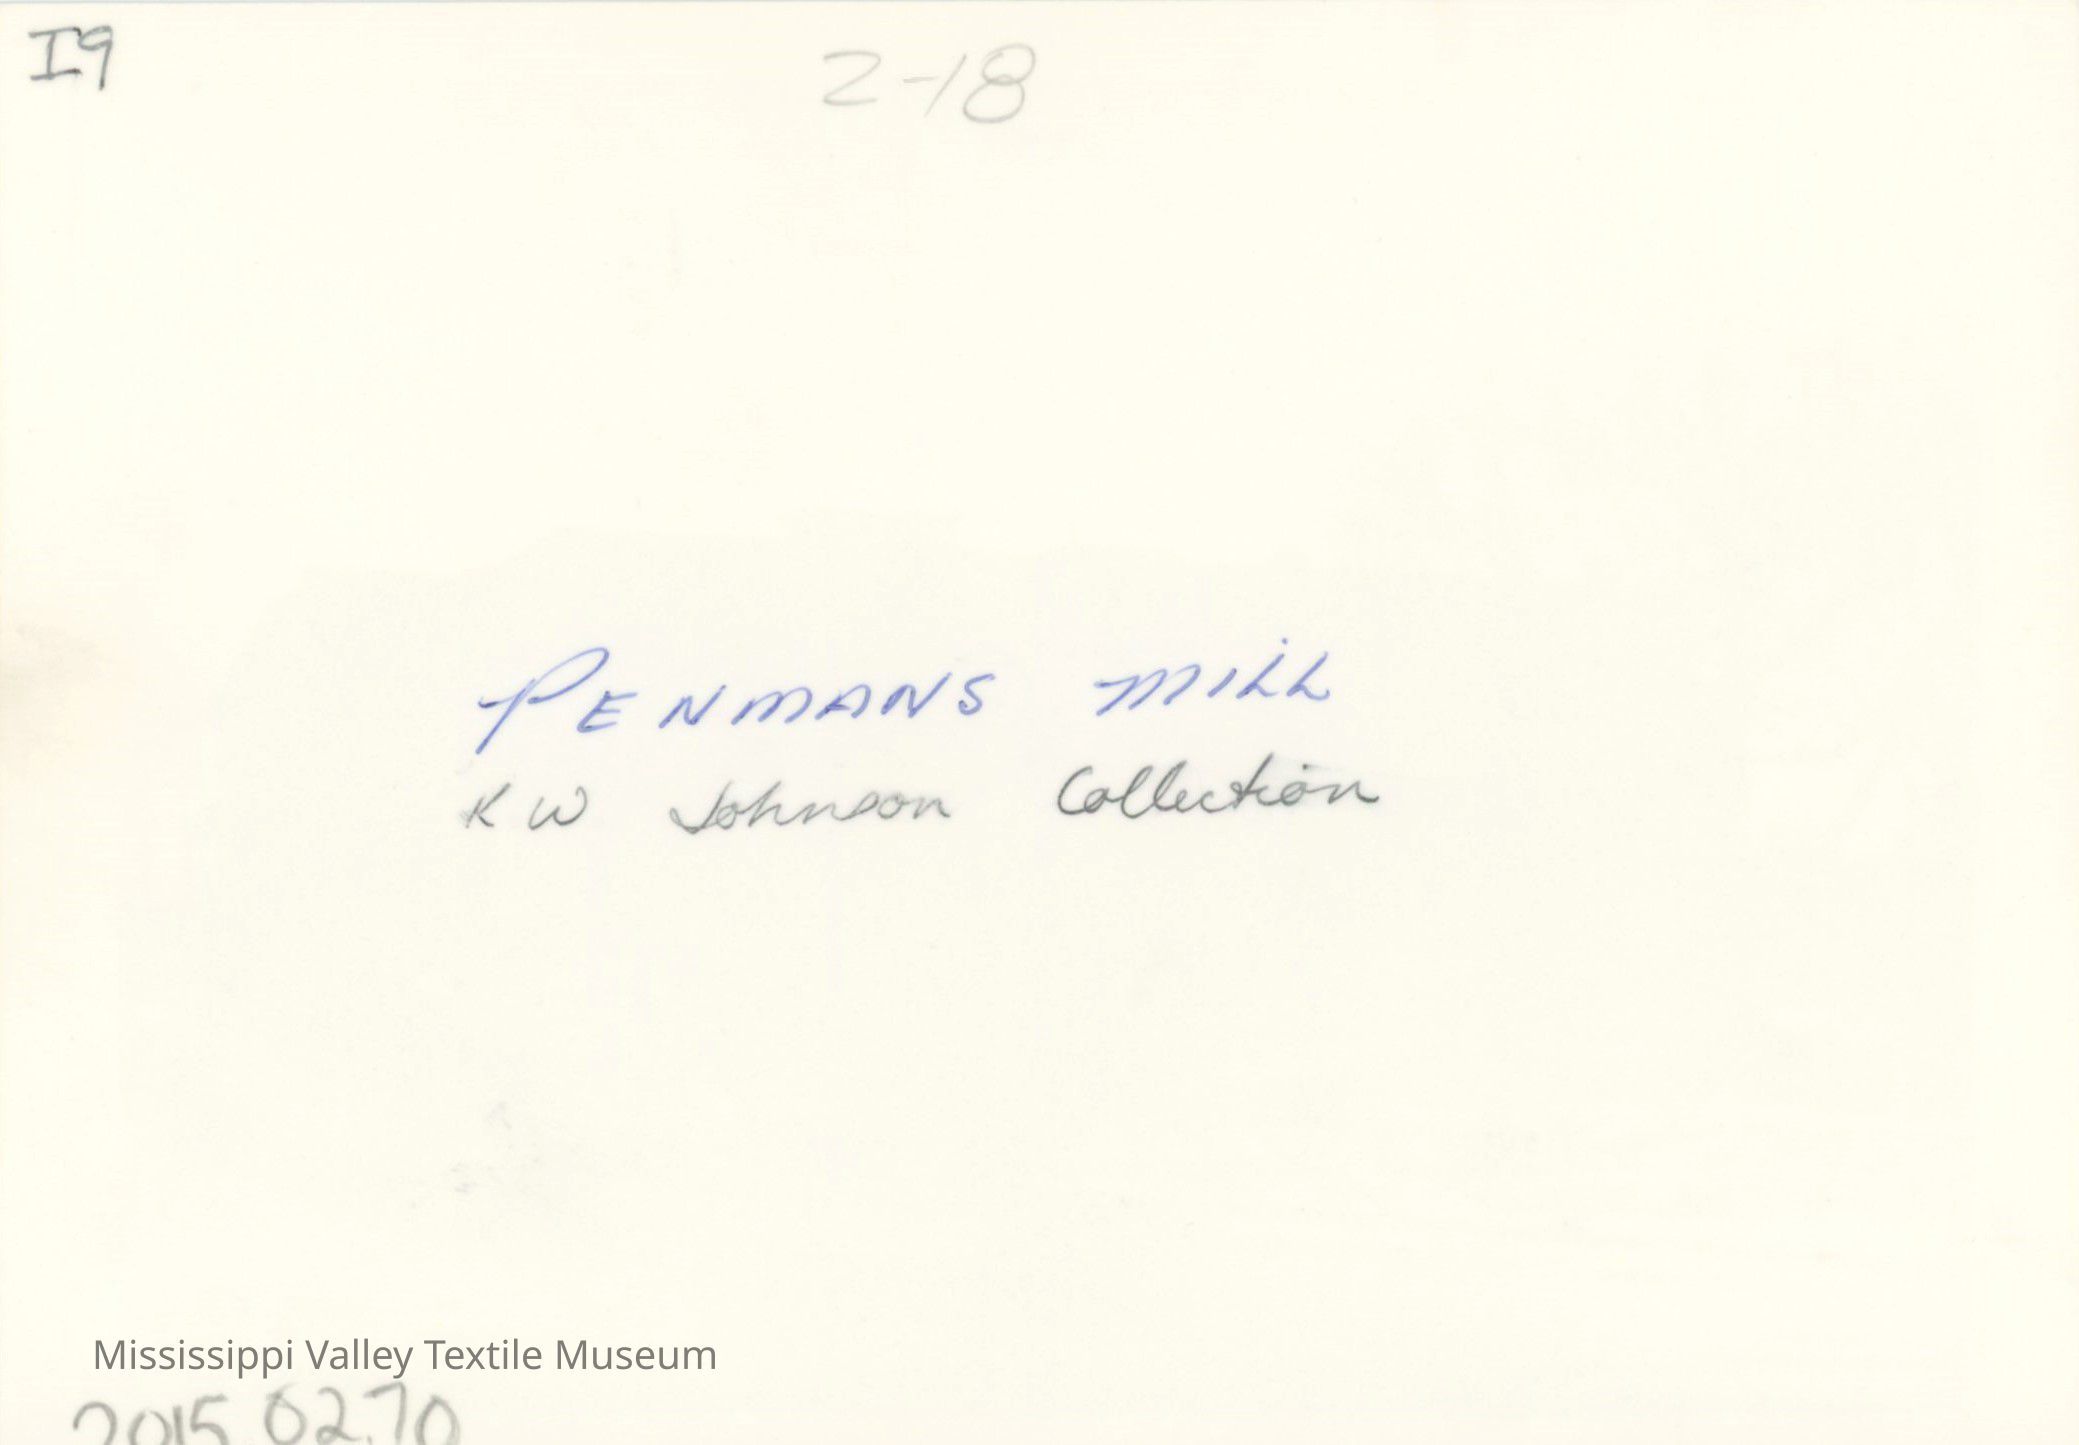 I9
2-18
PENMANS MILL
K W Johnson Collection
Mississippi Valley Textile Museum
2015.02.70